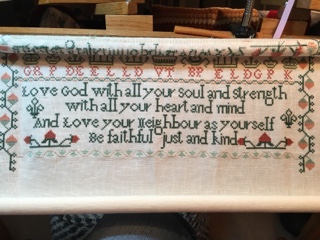 G R P D E E L L D V T B P E L D G P K
Love God with all your soul and strength
with all your heart and mind
And Love your Neighbour as yourself
Be faithful just and kind